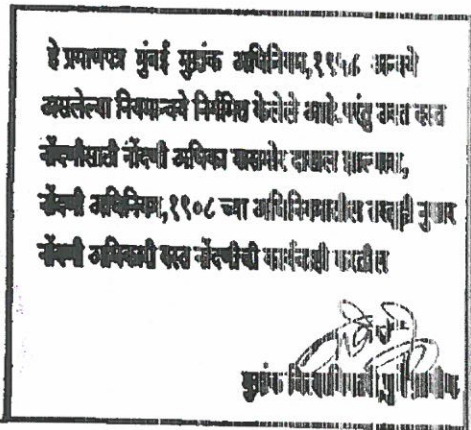 हे प्रमाणपत्र मुंबई मुद्रांक अधिनियम,१९५८ अन्वये
असलेल्या नियमान्वये निर्गमित केलेले आहे. परंतु उक्त दस्त
नोंदणीसाठी नोंदणी अधिका यासमोर दाखल झाल्यास,
नोंदणी अधिनियम,१९०८ च्या अधिनियमातील तरतूदी नुसार
नोंदणी अधिकारी दस्त नोंदणीची कार्यवाही करतील
मुद्रांक